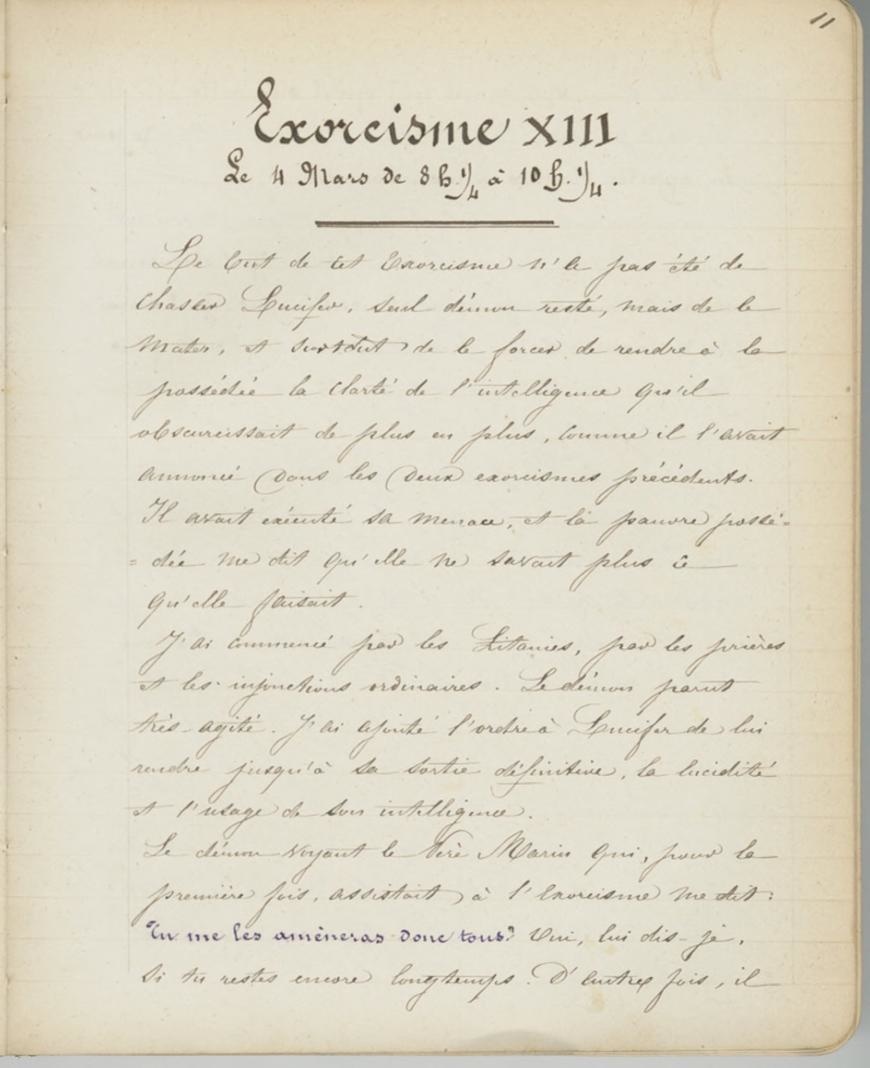 11
Exorcisme XIII
Le 4 Mars de 8 h. 1/4 à 10 h. 1/4.
Le but de cet Exorcisme n'a pas été de
chasser Lucifer, seul démon resté, mais de le
mater, et surtout de le forcer de rendre à la
possédée la clarté de l'intelligence qu'il
obscurcissait de plus en plus, comme il l'avait
annoncé dans les deux exorcismes précédents.
Il avait exécuté sa menace, et la pauvre possé=
=dée me dit qu'elle ne savait plus ce
qu'elle faisait.
J'ai commencé par les Litanies, par les prières
et les injonctions ordinaires. Le démon parut
très agité. J'ai ajouté l'ordre à Lucifer de lui
rendre jusqu'à sa sortie définitive, la lucidité
et l'usage de son intelligence.
Le démon voyant le Père Marin qui, pour la
première fois, assistait à l'Exorcisme me dit:
Tu me les amèneras donc tous? Oui, lui dis-je,
si tu restes encore longtemps. D'autres fois, il